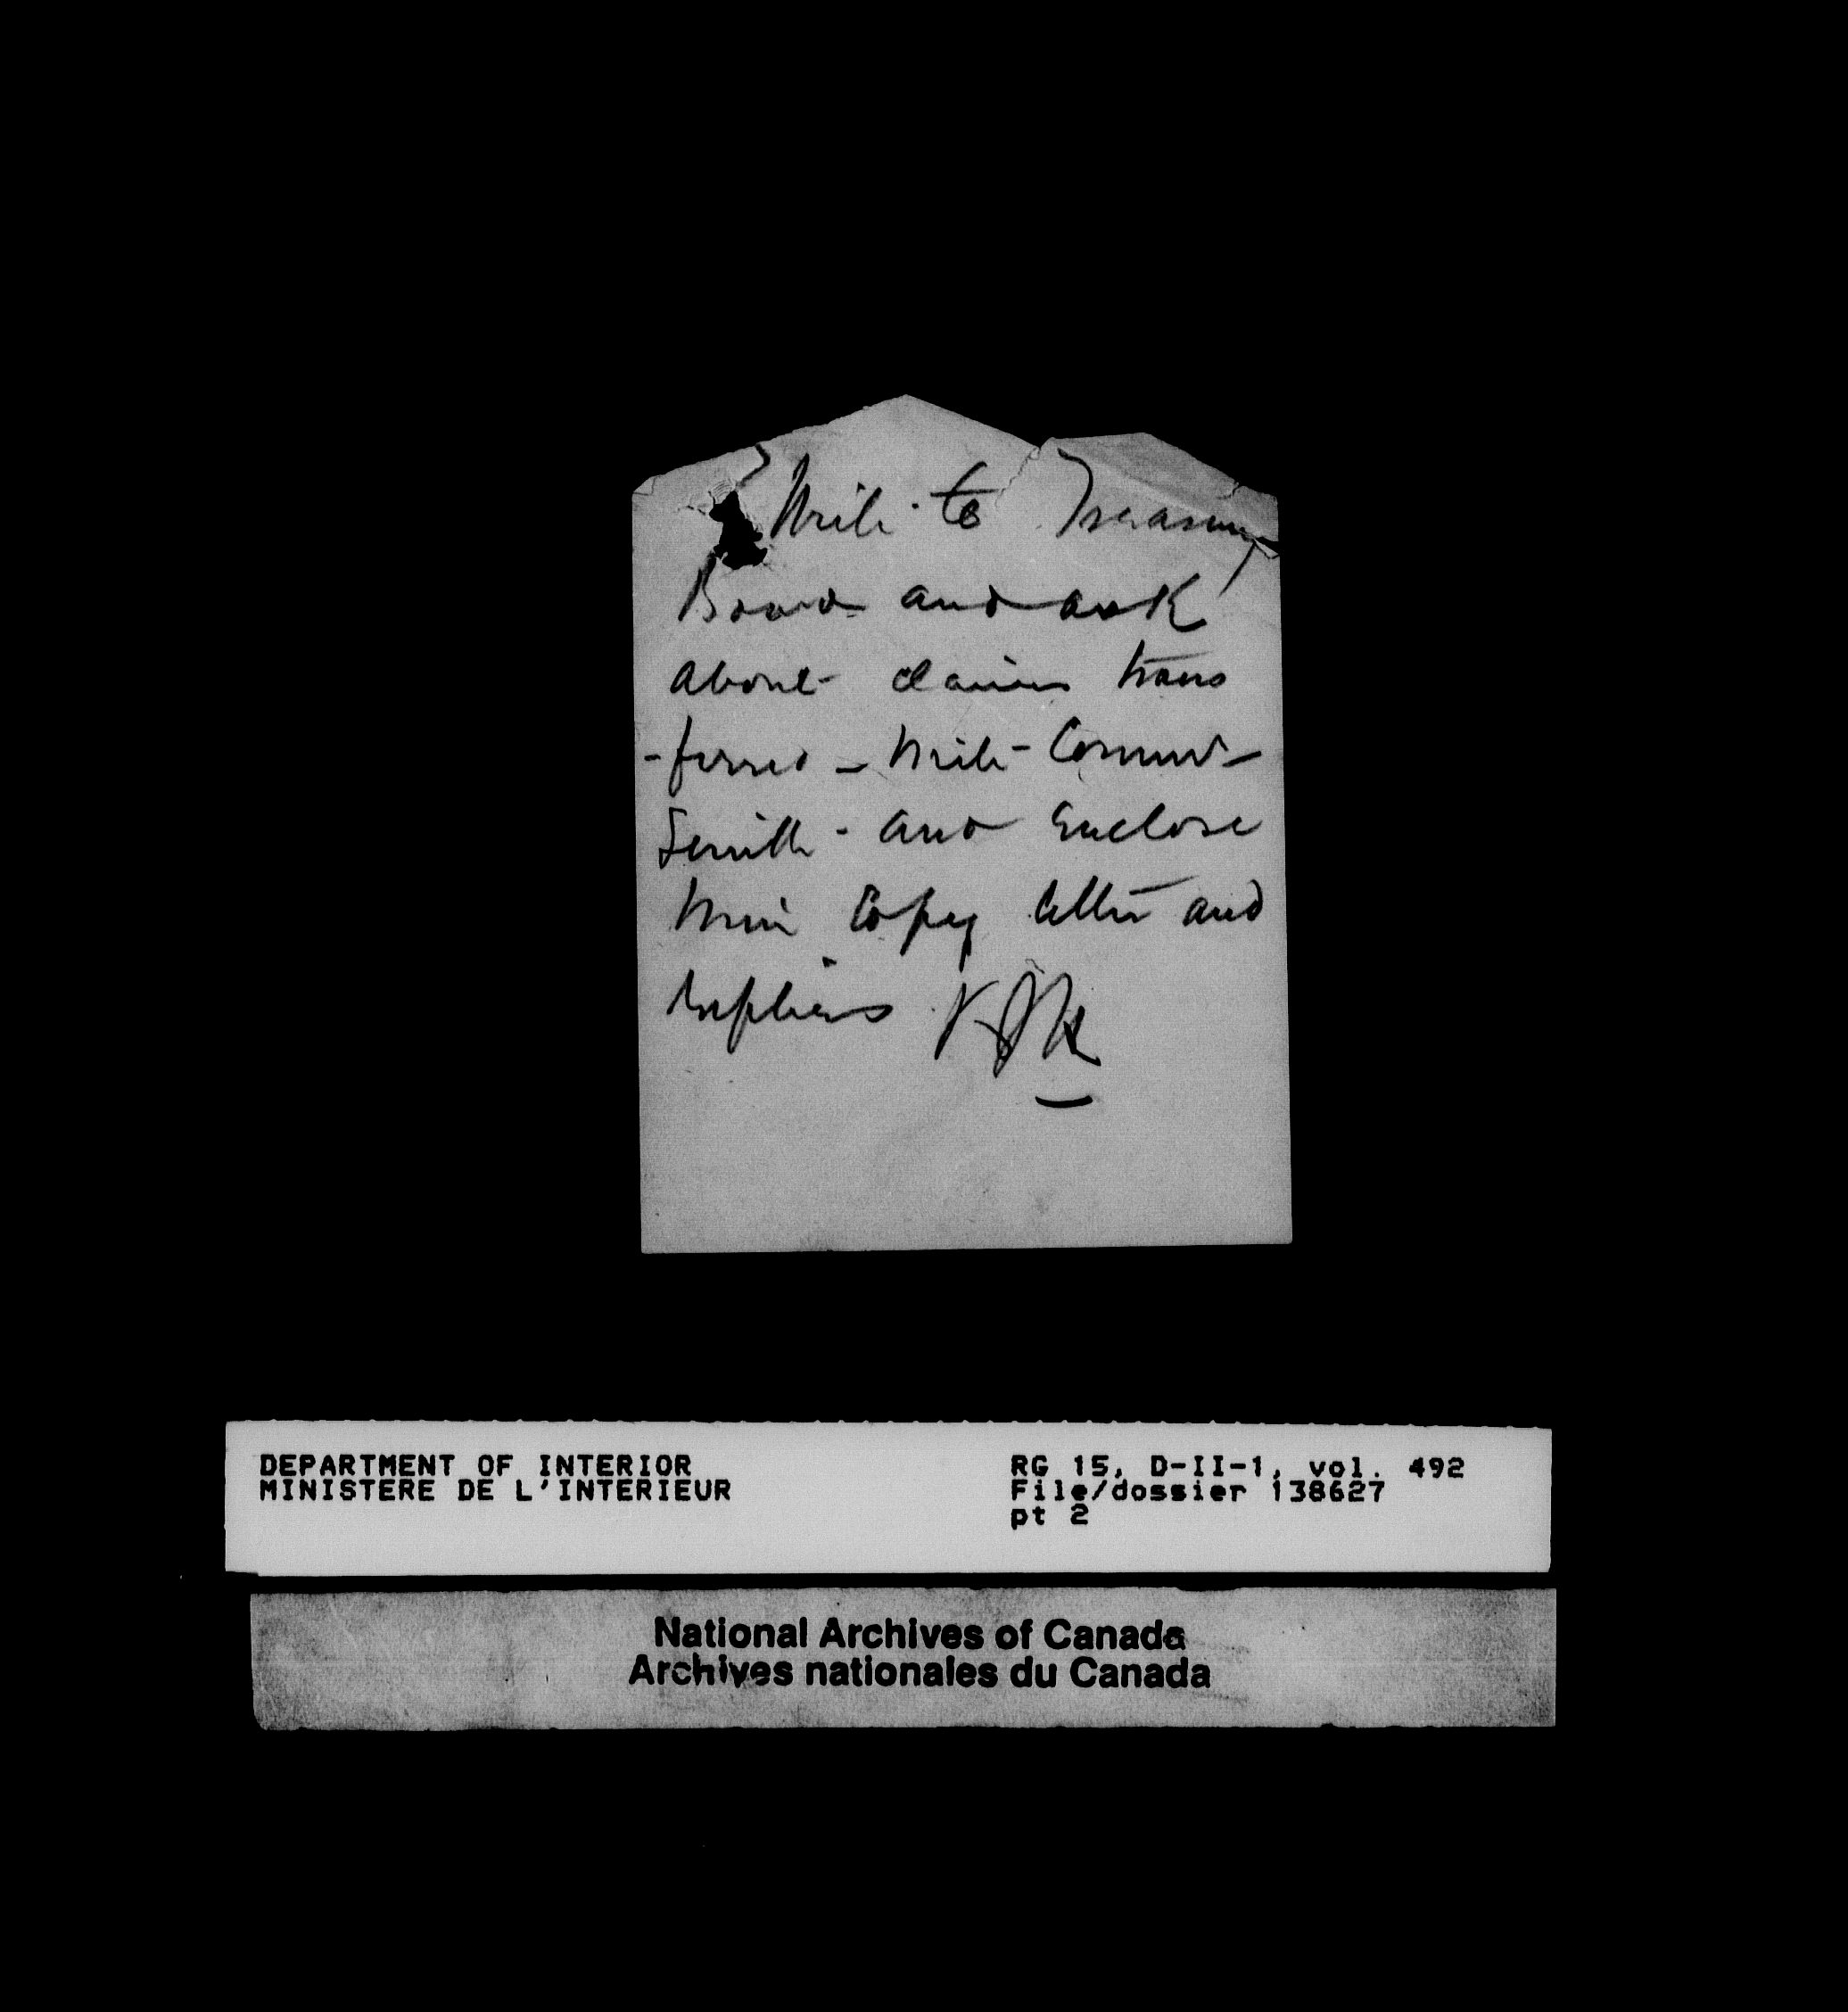 Write to Treasury
Board and ask
about claims trans
-ferred - Write Commr
Smith - and enclose
him copy letter and
replies
DEPARTMENT OF INTERIOR
MINISTERE DE L'INTERIEUR
RG 15, D-II-1, vol. 492
File/dossier 138627
pt 2
National Archives of Canada
Archives nationales du Canada